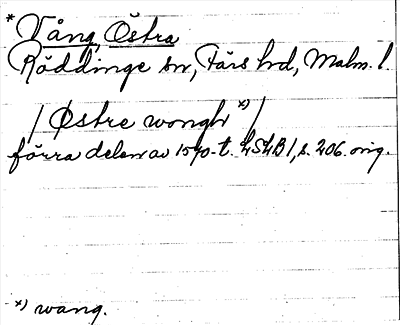 * Vång, Östra
Röddinge sn, Färs hrd, Malm. l.
/ Østre wongh *) /
förra delen av 1570-t. LSLB 1, s. 206. orig.
*) wang.